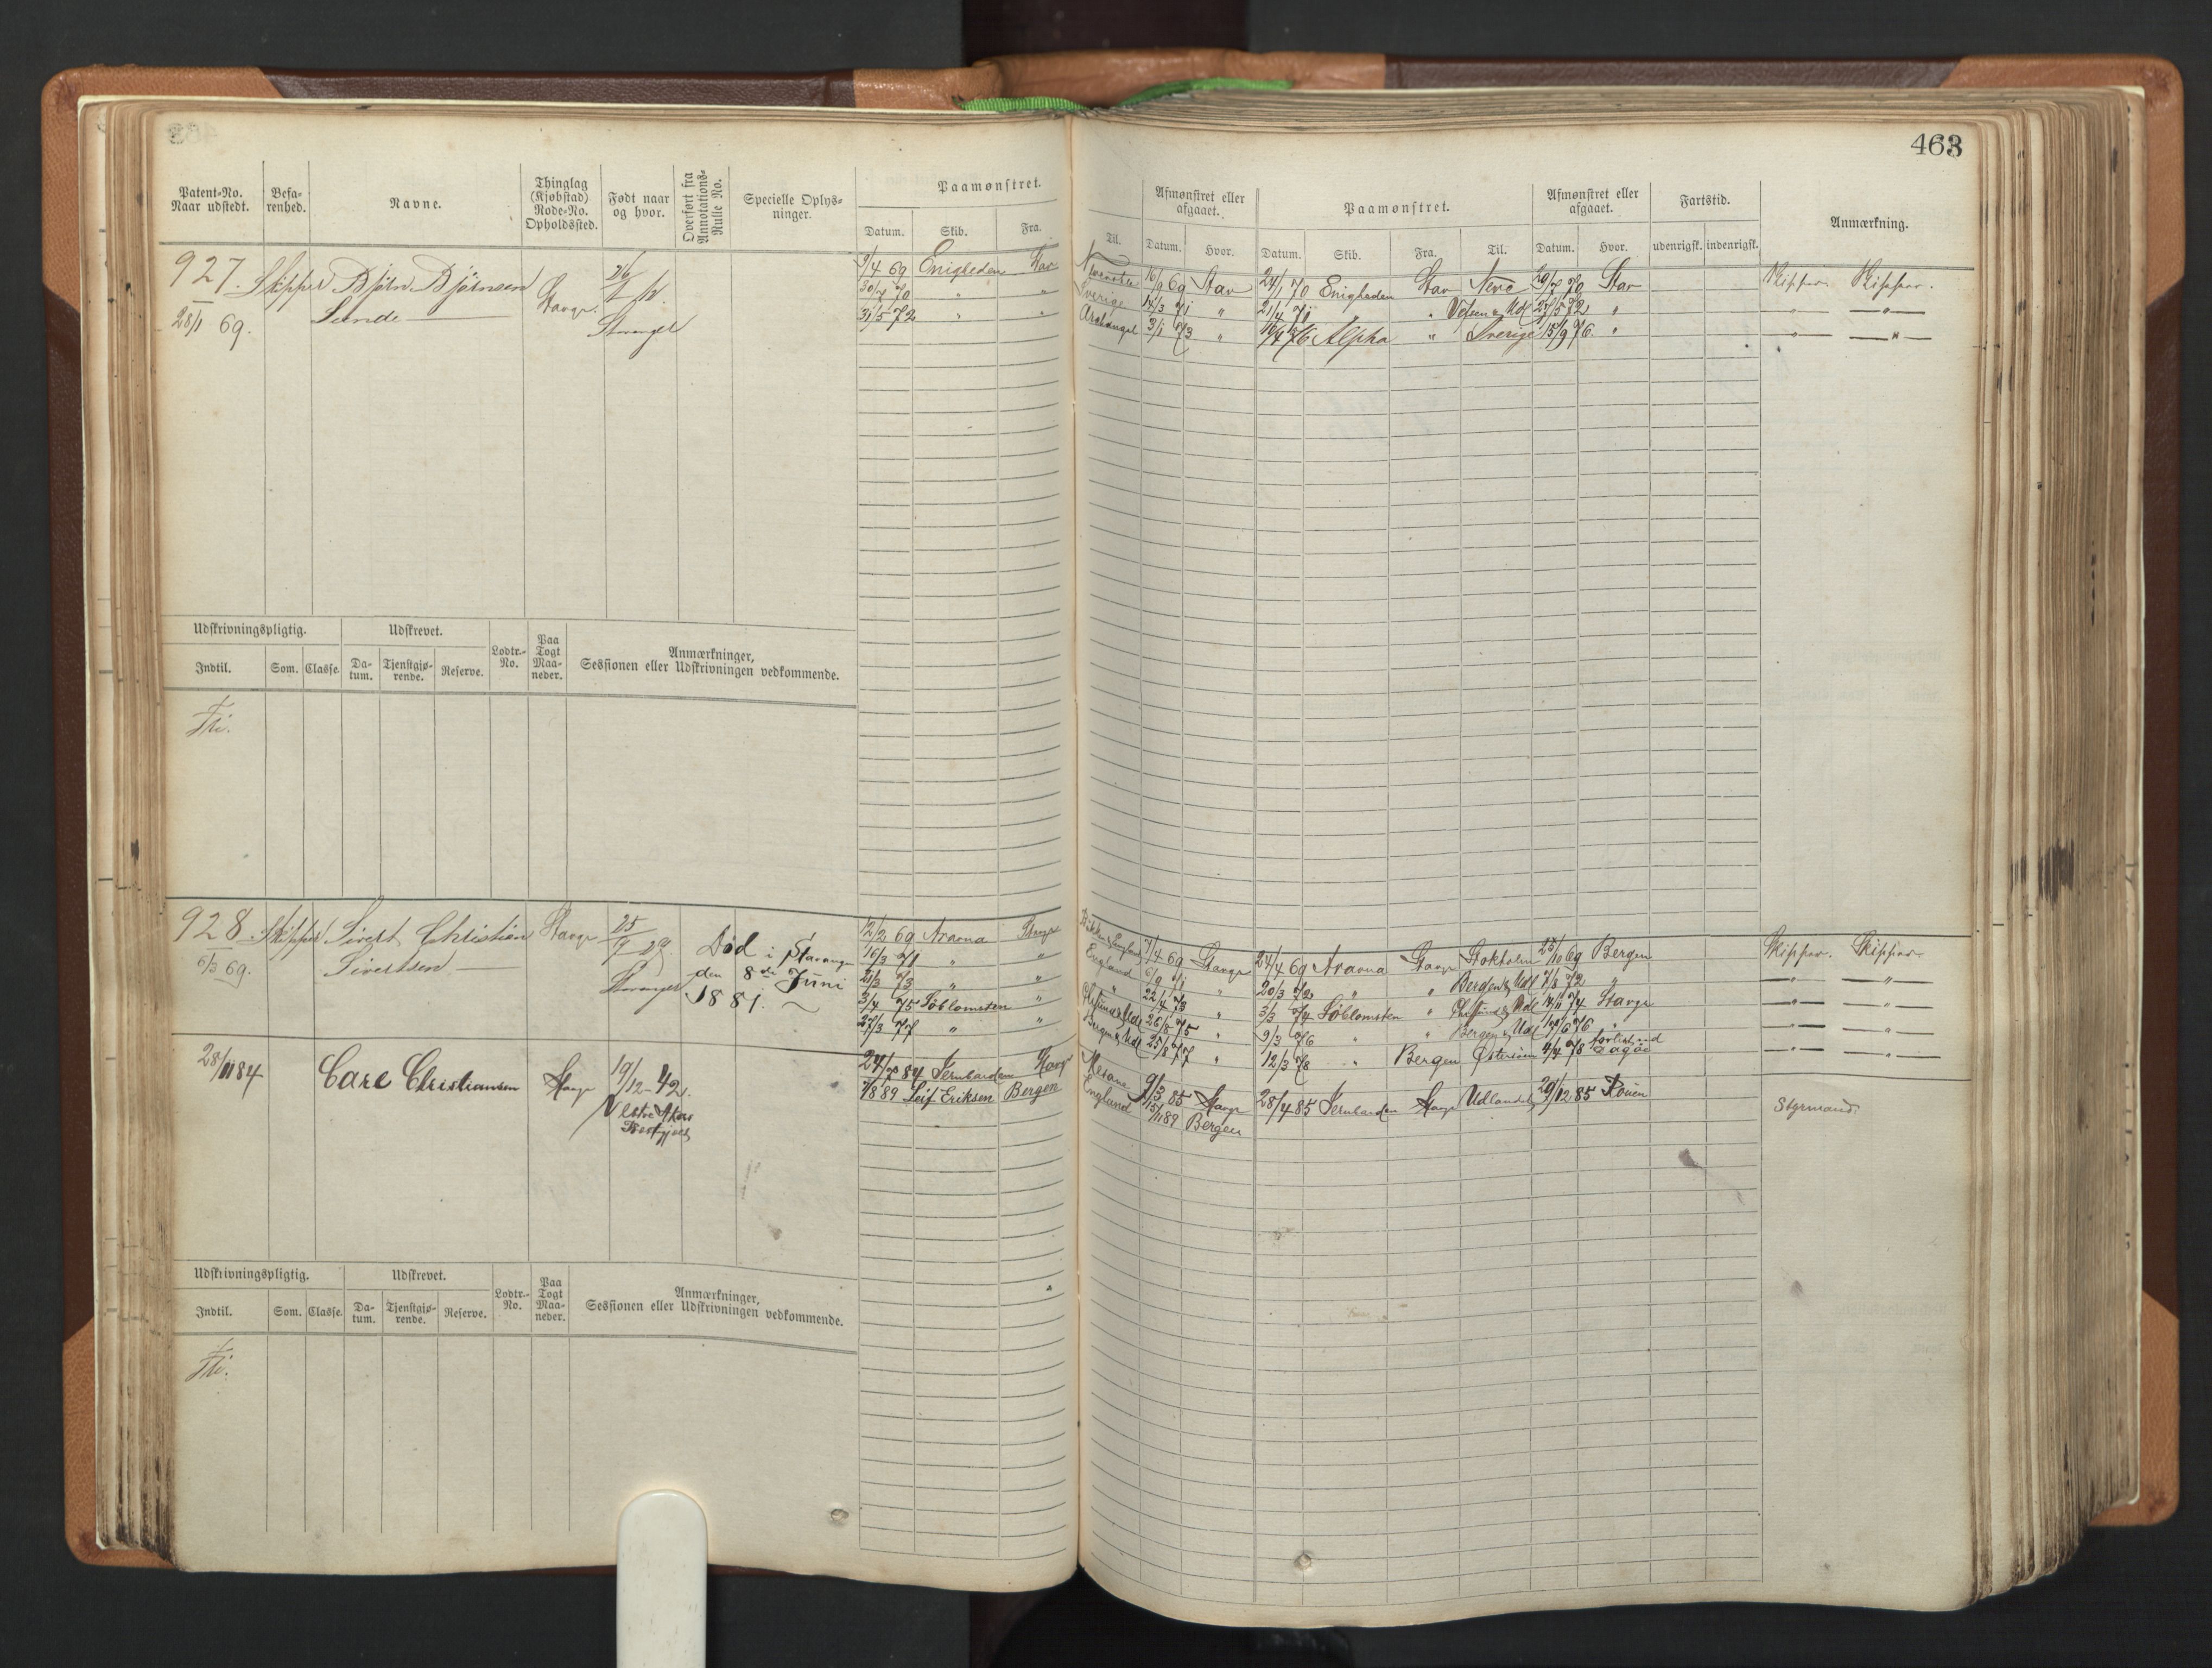 463
Patent-No. Naar udstedt.
Befarenhed.
Navne.
Thinglag (Kjøbstad) Rode-No. Opholdssted.
Født naar og hvor.
Overført fra Annotations-Rulle No.
Specielle Oplysninger.
Paamønstret.
Datum. Skib. Fra. Til.
Afmønstret eller afgaaet.
Datum. Hvor.
Paamønstret.
Datum. Skib. Fra. Til.
Afmønstret eller afgaaet.
Datum. Hvor.
Fartstid.
udenrigsk. indenrigsk.
Anmærkning.
927. Skipper Bjørn Bjørnsen Stavgr.
28/1 69. Sunde Stavanger
9/4 69 Enigheden Stav 16/9 69 Stav 24/1 70 Enigheden Stav Newc 29/7 70 Stav Skipper. Skipper.
30/7 70 " " Sverige 14/3 71 " 21/4 71 " 27/5 72 " " "
31/5 72 " " Archangel 3/1 73 " Alpha " Sverige 15/9 76 " " "
Udskrivningspligtig. Udskrevet. Lodtr.-No. Paa Togt Maaneder. Anmærkninger, Sessionen eller Udskrivningen vedkommende.
Indtil. Som. Classe. Datum. Tjenstgjørende. Reserve.
Fri.
928 Skipper Sivert Christian Stavgr 25/9 29.
6/3 69. Sivertsen Stavanger
Død i Stavanger
den 8de Juni
1881.
12/2 69 Ararna Stavgr England 7/4 69 Stavgr 24/4 69 Ararna Stavgr Stokholm 25/10 69 Bergen Skipper. Skipper.
16/3 71 " " England 6/9 71 " 20/3 72 " " Bergen & Udl 7/8 72 " " "
21/3 73 " " " 22/4 73 " 3/3 74 Søblomsten " 14/11 74 Stavgr " "
3/4 75 Søblomsten " 26/8 75 " 9/3 76 " " Bergen & Udl 17/6 76 " " "
27/3 77 " " Bergen & Udl 25/8 77 " 12/3 78 " Bergen Østersøen 4/4 78 " "
28/11 84 Carl Christiansen Stavgr 19/12-42.
24/7 84 Jernbarden Stavgr 9/3 85 Stavgr 28/4 85 Jernbarden Stavgr Udlandet 29/12 85 Rouen
7/8 89 Leif Eriksen Bergen England 15/11 89 Bergen Styrmand.
Udskrivningspligtig. Udskrevet. Lodtr.-No. Paa Togt Maaneder. Anmærkninger, Sessionen eller Udskrivningen vedkommende.
Indtil. Som. Classe. Datum. Tjenstgjørende. Reserve.
Fri.